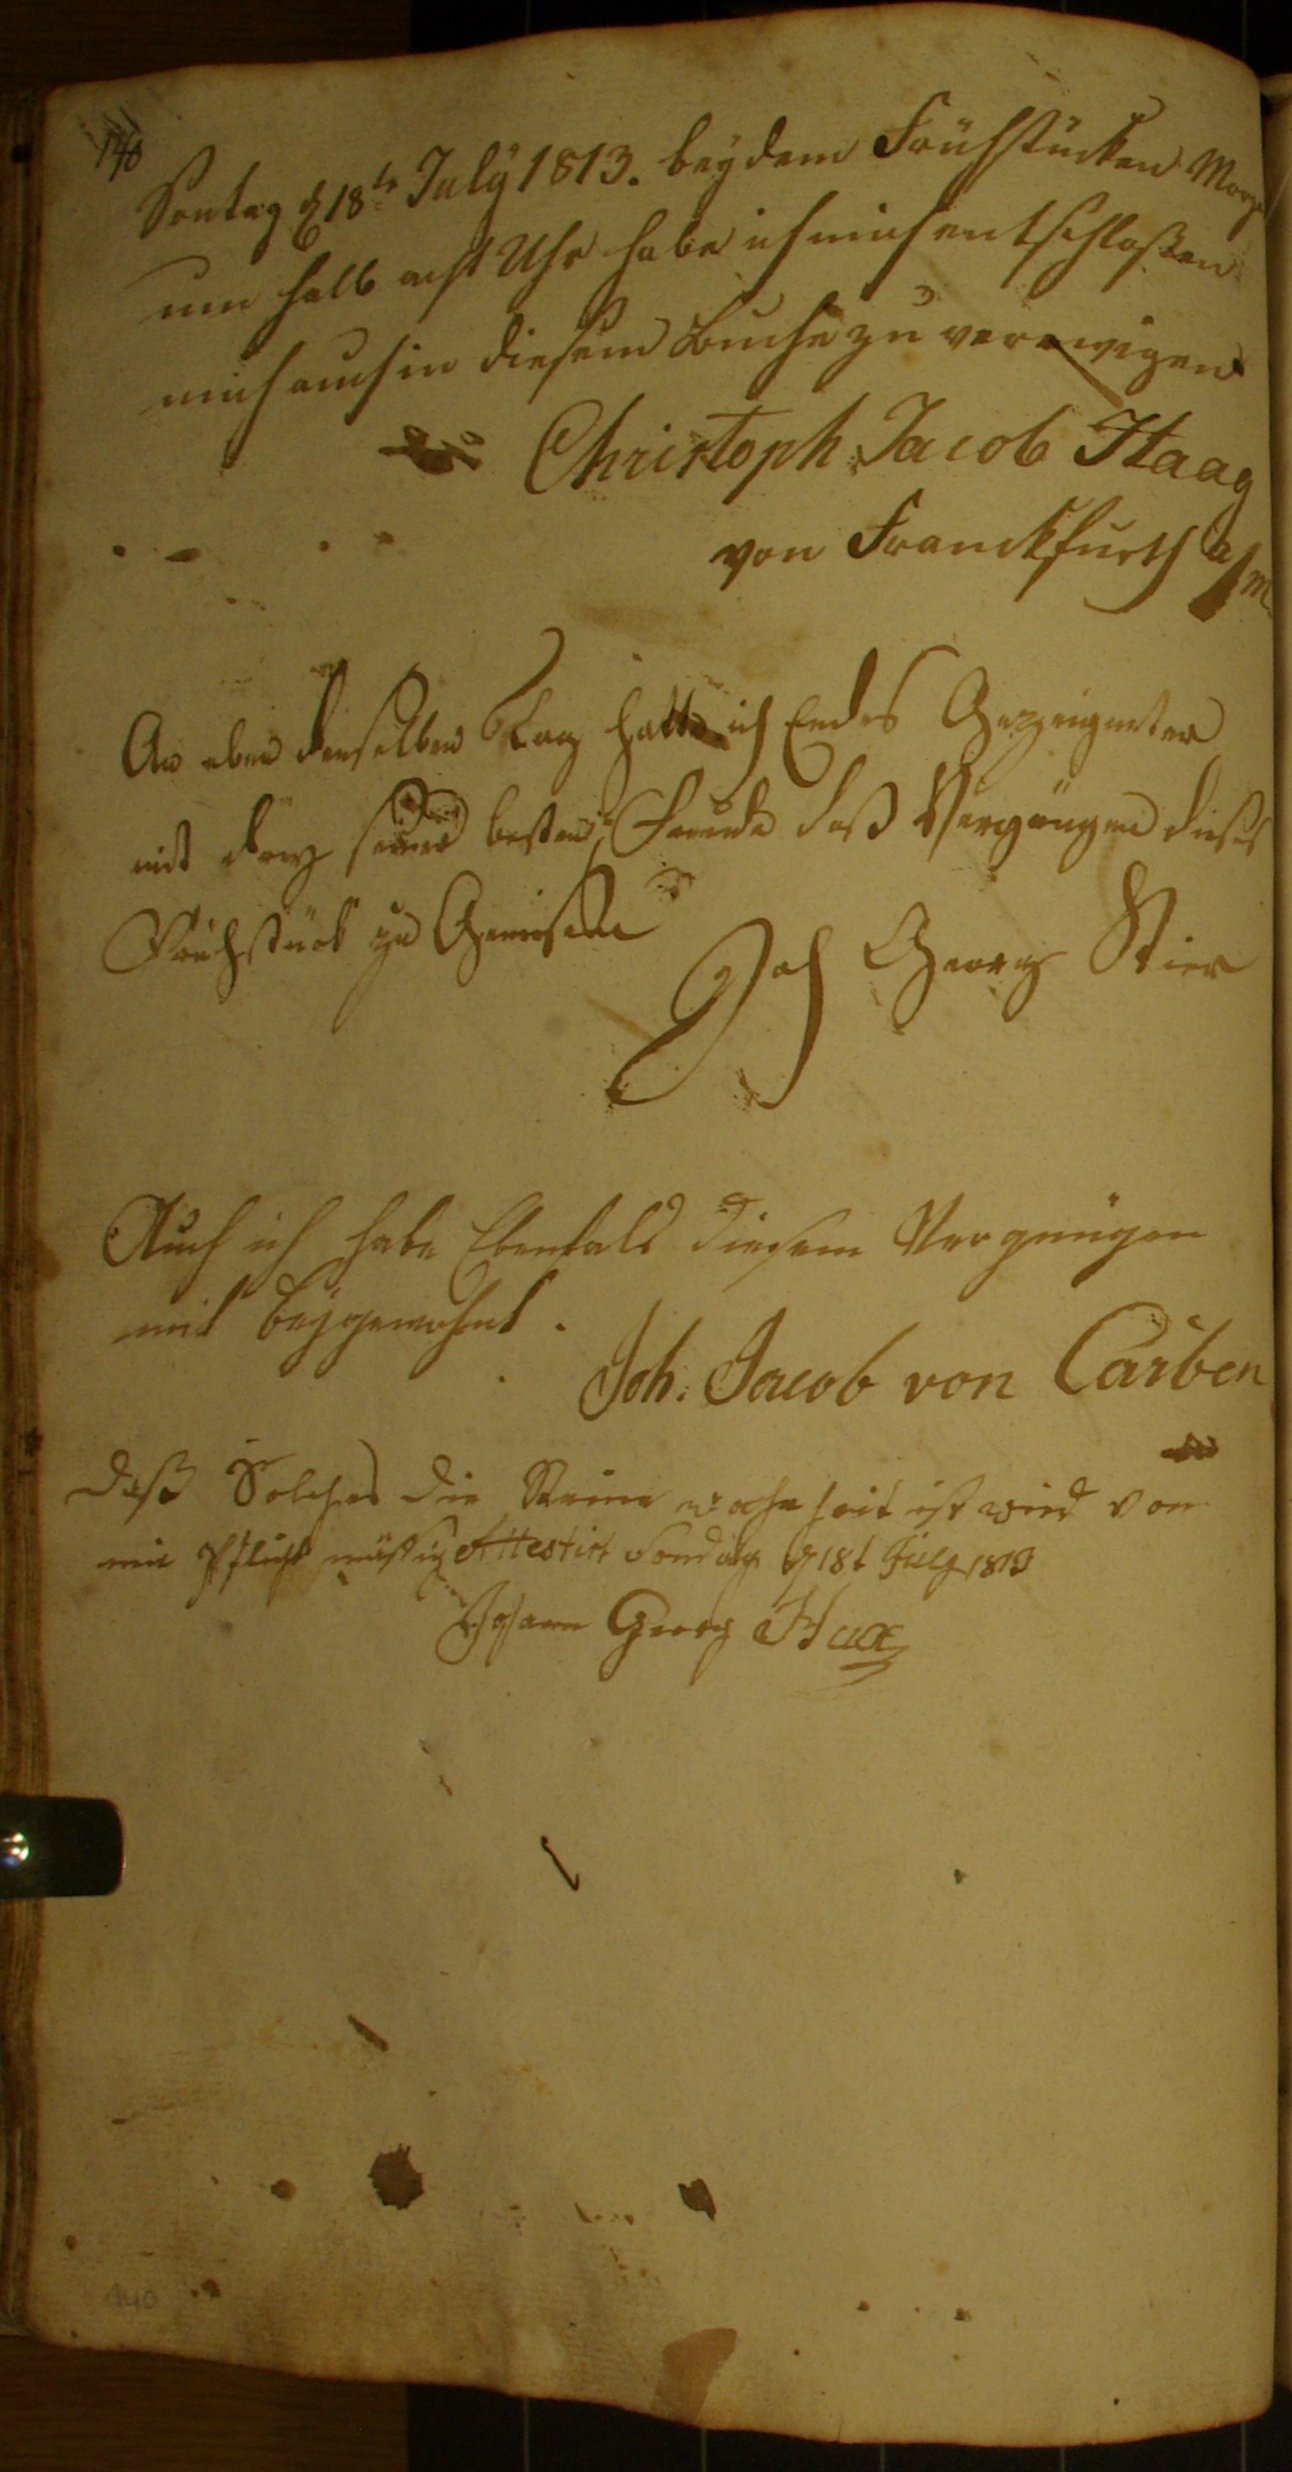 140
Sontag d 18te July 1813. bey dem Frühstücken Morge
um halb acht Uhr habe ich mich entschloßen
mich auch in diesem Buche zu verewigen
Christoph Jacob Haag
von Franckfurth a/m
An eben denselben Tag hatte ich Endes Gezeigneter
mit drey seiner besten Freunde daß Vergnügen dieses
Frühstück zu Geniesen
Joh Georg Stier
Auch ich habe Ebenfals diesem Vergnügen
mit beygewohnt.
Joh. Jacob von Carben
Daß Solches die Reine wahrheit ist wird von
mir Pflicht mäsig Attestirt Sondag d 18t July 1813
Johann Georg
140